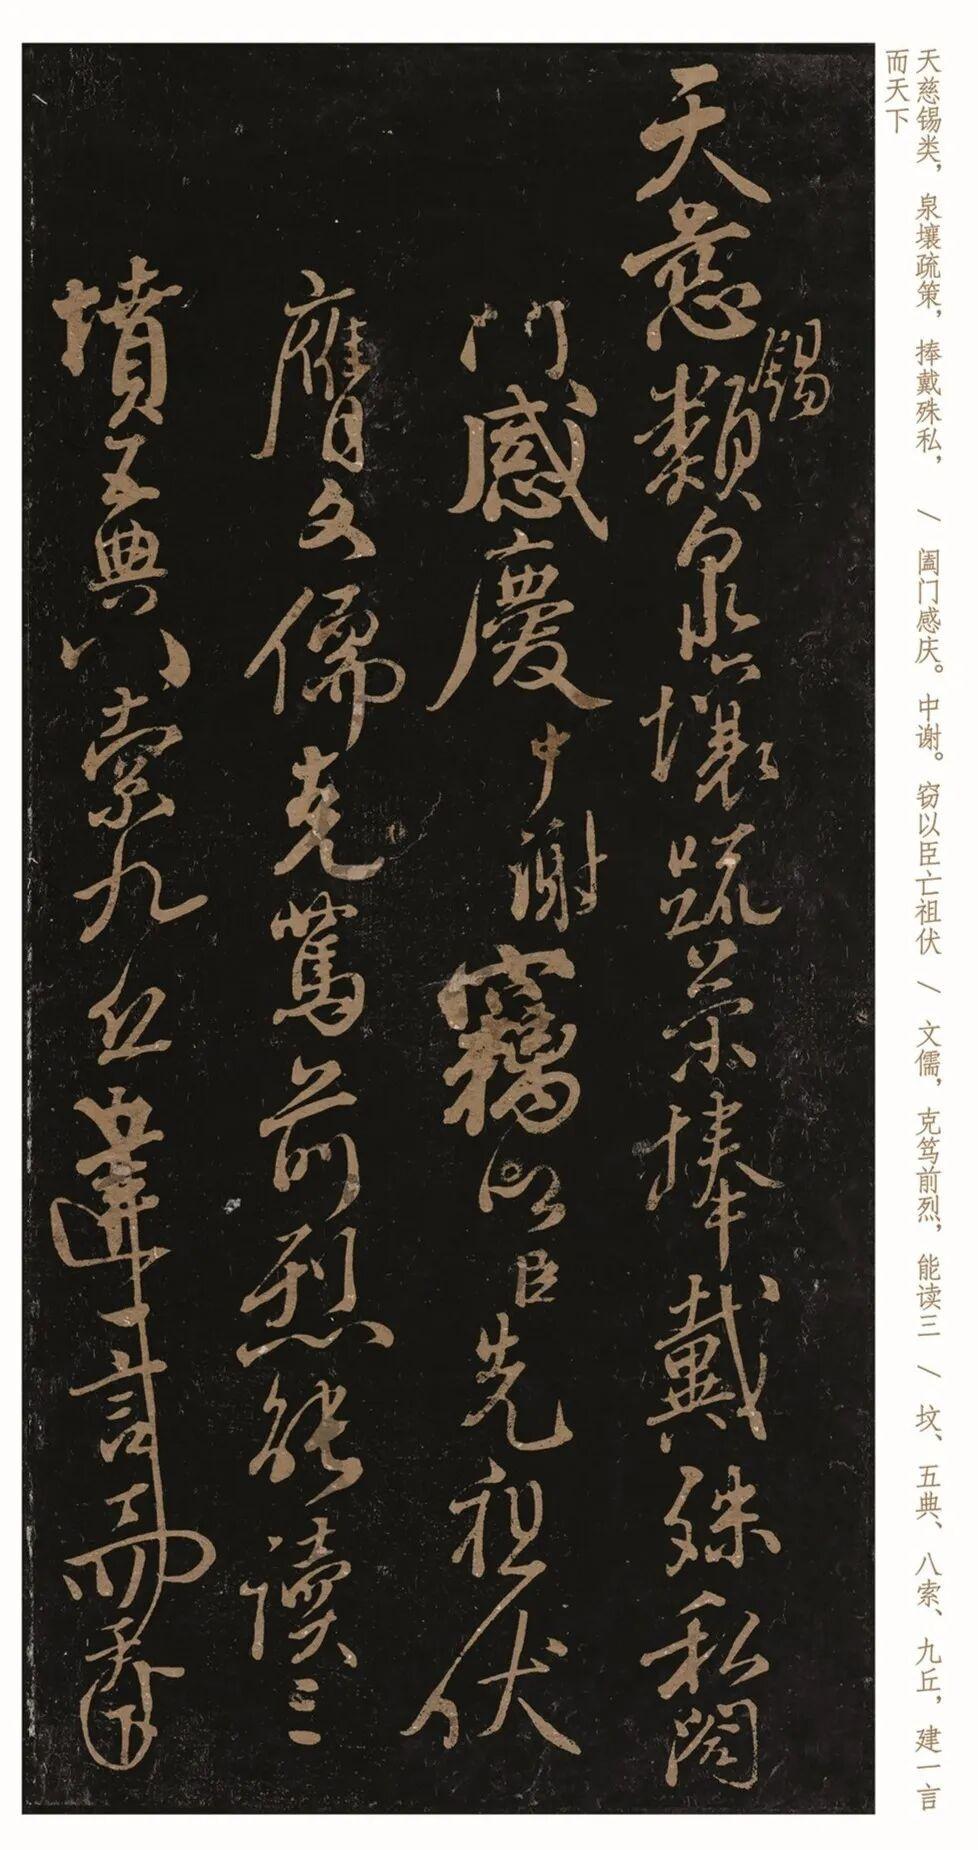 天慈锡类，泉壤疏策，捧戴殊私， / 阖门感庆。中谢。窃以臣亡祖伏 / 文儒，克笃前烈，能读三 / 坟、五典、八索、九丘，建一言
而天下
天慈錫類泉壤疏榮捧戴殊私闔
門感慶中謝竊以臣先祖伏
膺文儒克篤前烈能讀三
墳五典八索九丘建一言而天下